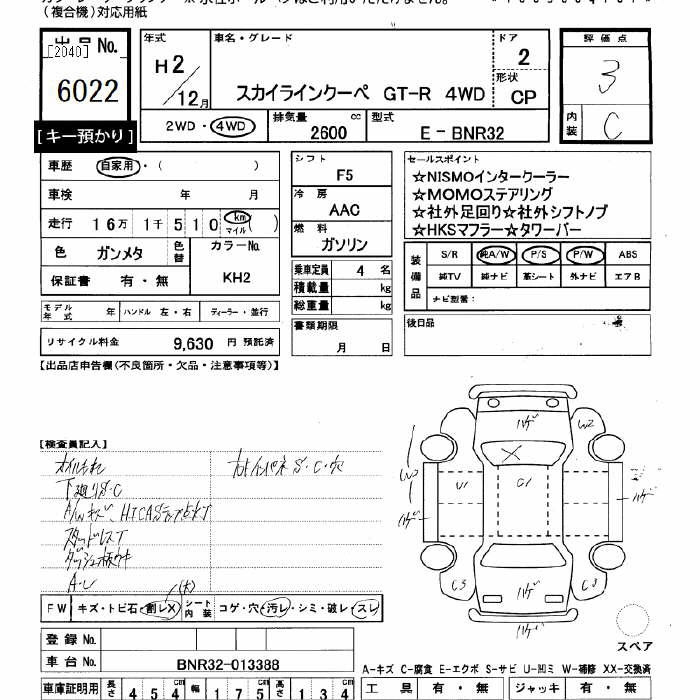 (複合機)対応用紙
出品No.
[2040]
6022
【キー預かり】
年式
H2/12月
車名・グレード
スカイラインクーペ GT-R 4WD
ドア
2
形状
CP
評価点
3
内装
C
2WD・4WD
排気量
2600 cc
型式
E-BNR32
車歴 自家用・( )
車検 年 月
走行 16万 1千 510 km マイル ( )
色 ガンメタ 色替
カラーNo.
KH2
保証書 有・無
モデル年式 年 ハンドル 左・右 ディーラー・並行
リサイクル料金 9,630 円 預託済
シフト
F5
冷房
AAC
燃料
ガソリン
乗車定員 4 名
積載量 kg
総重量 kg
書類期限
月 日
セールスポイント
☆NISMOインタークーラー
☆MOMOステアリング
☆社外足回り☆社外シフトノブ
☆HKSマフラー☆タワーバー
装備品
S/R 純A/W P/S P/W ABS
純TV 純ナビ 革シート 外ナビ エアB
ナビ型番:
後日品
【出品店申告欄(不良箇所・欠品・注意事項等)】
【検査員記入】
オイルもれ
下廻りS・C
A/Wキズ、HICASランプ点灯
スタッドレスT
A・C
FW キズ・トビ石・割レX (大) シート内装 コゲ・穴・汚レ・シミ・破レ・スレ
登録No.
車台No. BNR32-013388
車庫証明用 長さ 454 cm 幅 175 cm 高さ 134 cm
ハゲ
W2
X
U1
G1
W3
ハゲ
ハゲ
C3
ハゲ
ハゲ
スペア
A-キズ C-腐食 E-エクボ S-サビ U-凹ミ W-補修 XX-交換済
工具 有・無 ジャッキ 有・無